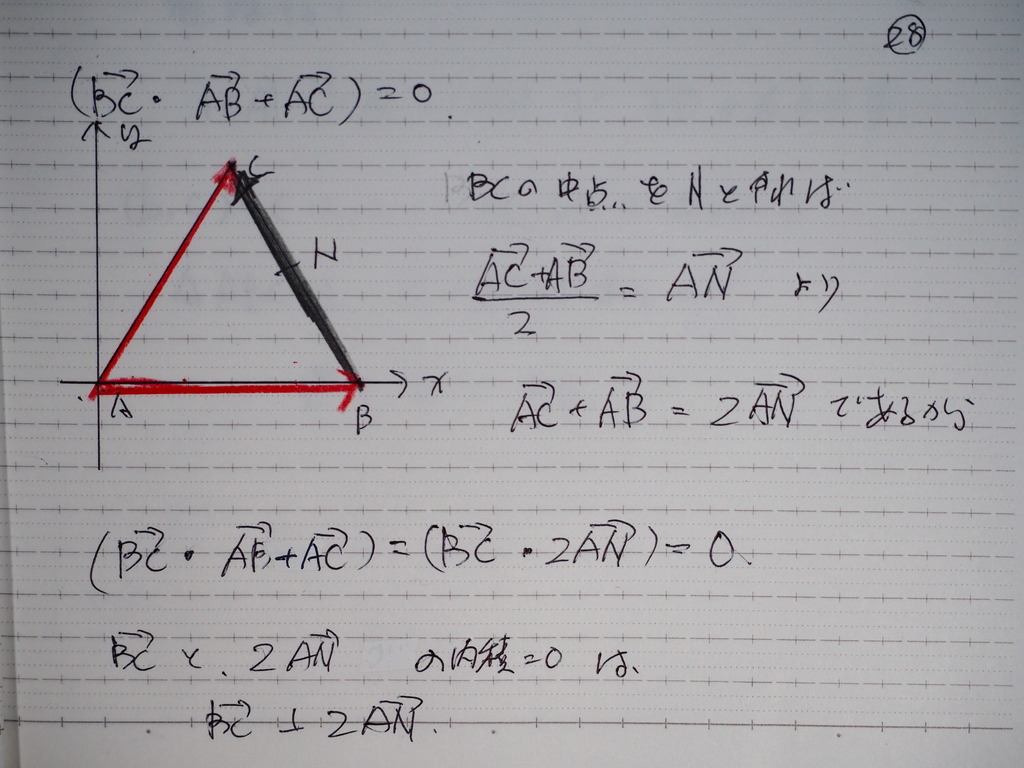 28
(BC→・ AB→+AC→)=0.
y
C
BCの中点..をNとすれば..
N
AC→+AB→
2
= AN→ より
x
A
B
AC→+AB→ = 2AN→ であるから
(BC→・AB→+AC→)=(BC→・2AN→)=0、
BC→と.2AN→ の内積=0 は、
BC→⊥2AN→.